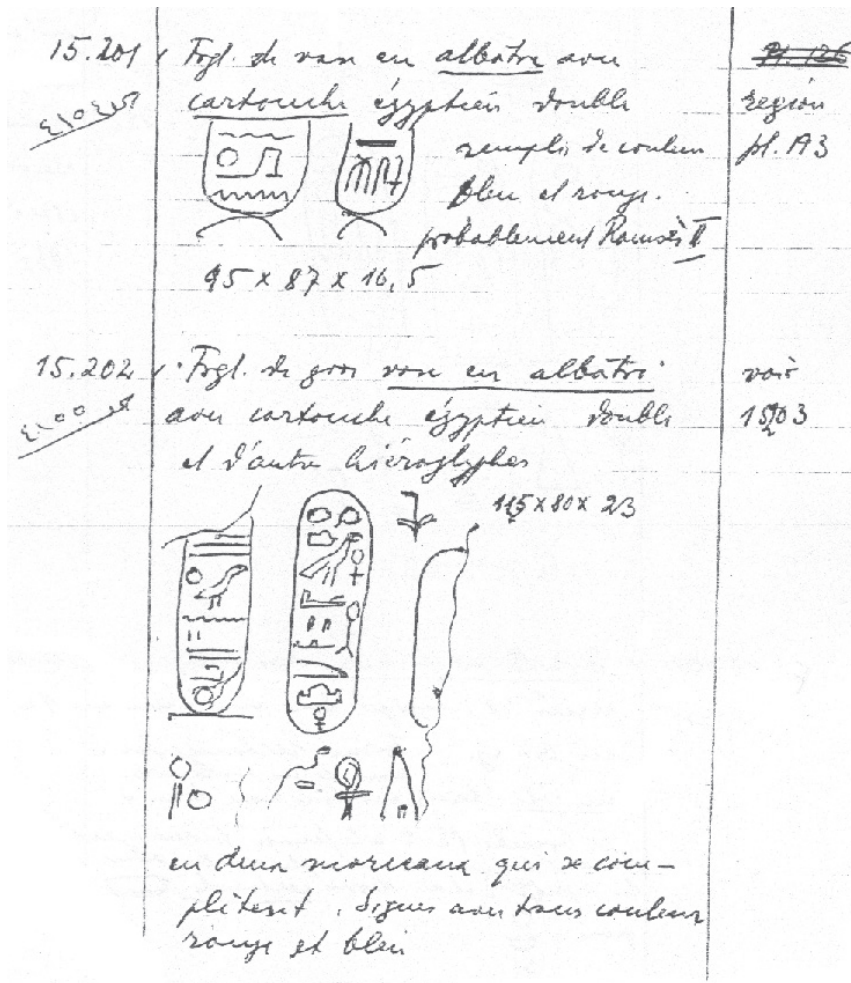 15.201 Frgt. de vase en albâtre avec
cartouche égyptien double
remplis de couleur
bleu et rouge.
probablement Ramsès II
95 x 87 x 16,5
région
pl. A3
15.202 Frgt. de gros vase en albâtre
avec cartouche égyptien double
et d'autre hiéroglyphes
115 x 80 x 23
voir
en deux morceaux qui se com-
plètent. Signes avec traces couleur
rouge et bleu